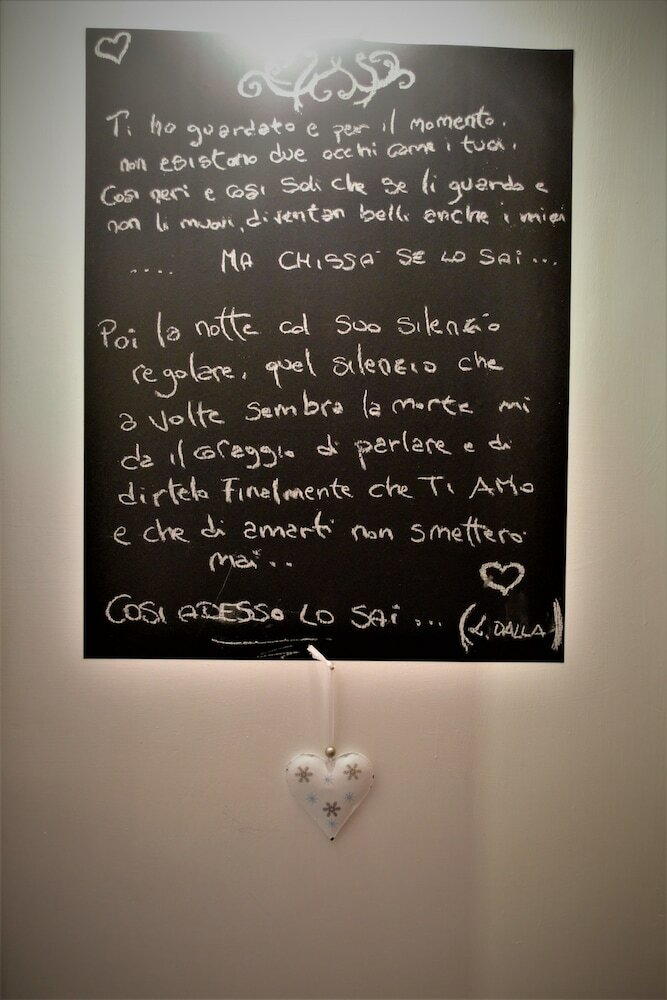 Ti ho guardato e per il momento.
non esistono due occhi come i tuoi.
Così neri e così soli che se li guardo e
non li muovi, diventan belli anche i miei
.... MA CHISSA' SE LO SAI...
Poi la notte col suo silenzio
regolare, quel silenzio che
a volte sembra la morte mi
da il coraggio di parlare e di
dirtelo finalmente che TI AMO
e che di amarti non smetterò
mai...
COSI ADESSO LO SAI... (L. DALLA)